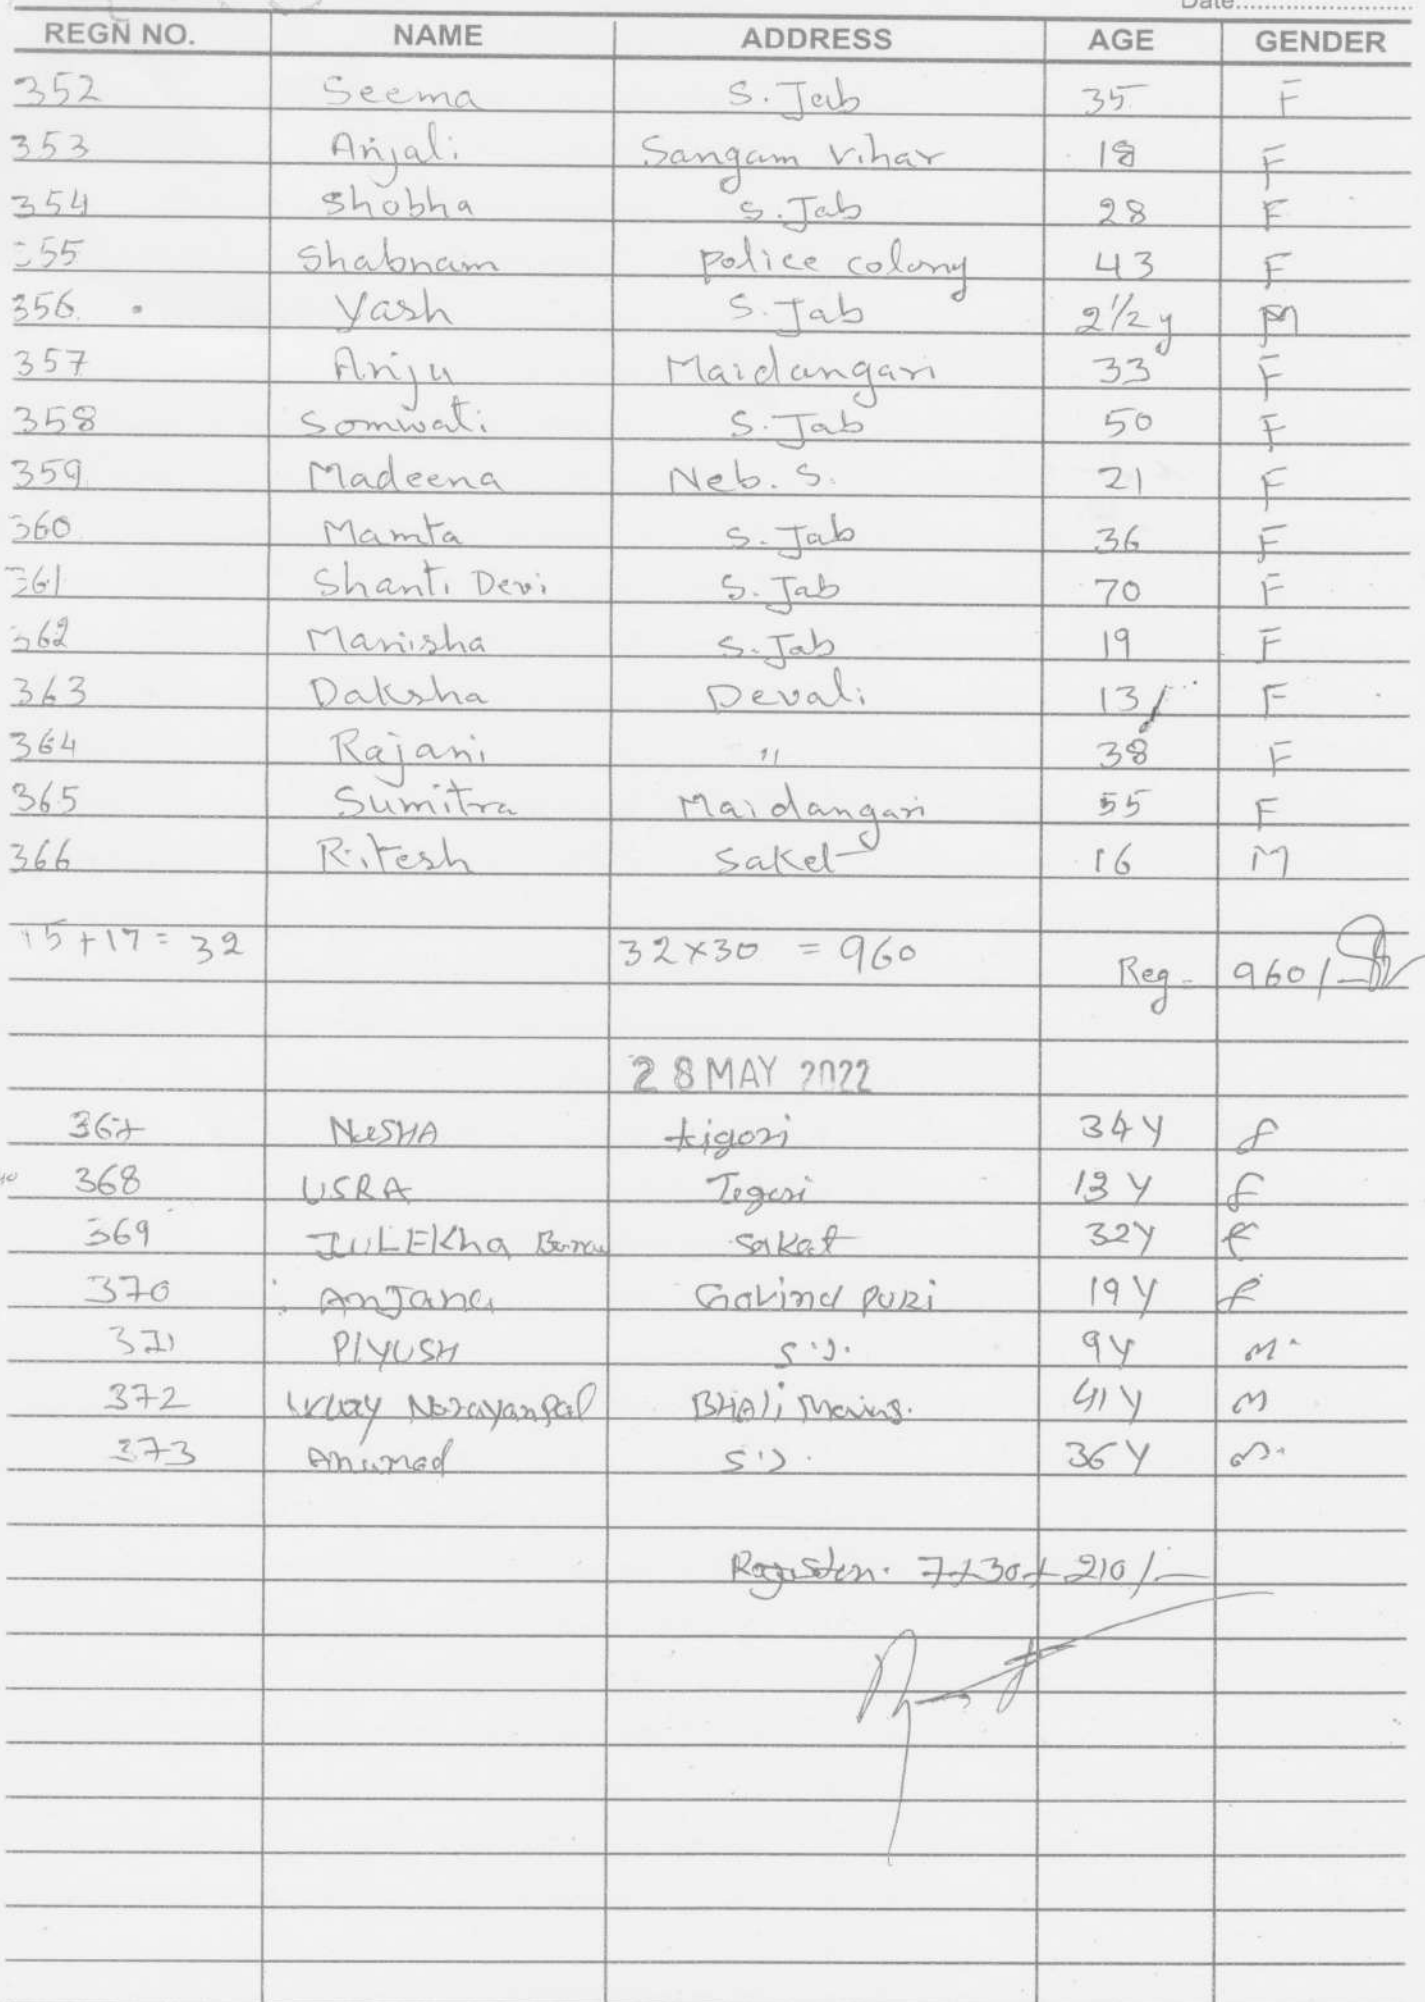 Date
REGN NO. NAME ADDRESS AGE GENDER
352 Seema S. Jab 35 F
353 Anjali Sangam Vihar 18 F
354 Shobha S. Jab 28 F
355 Shabnam police colony 43 F
356 Yash S. Jab 2 1/2 y M
357 Anju Maidangari 33 F
358 Somwati S. Jab 50 F
359 Madeena Neb. S. 21 F
360 Mamta S. Jab 36 F
361 Shanti Devi S. Jab 70 F
362 Manisha S. Jab 19 F
363 Daksha Devali 13 F
364 Rajani " 38 F
365 Sumitra Maidangari 55 F
366 Ritesh Saket 16 M
15+17 = 32 32×30 = 960
Reg - 960/-
28 MAY 2022
367 NUSHA tigori 34Y f
368 USRA Tegori 13 Y f
369 JULEKha Sakat 32Y f
370 AnJana Govind PURI 19 Y f
371 PIYUSH S.J. 9Y M
372 Narayanpal 41 Y M
373 S.J. 36 Y M
7×30 210/-